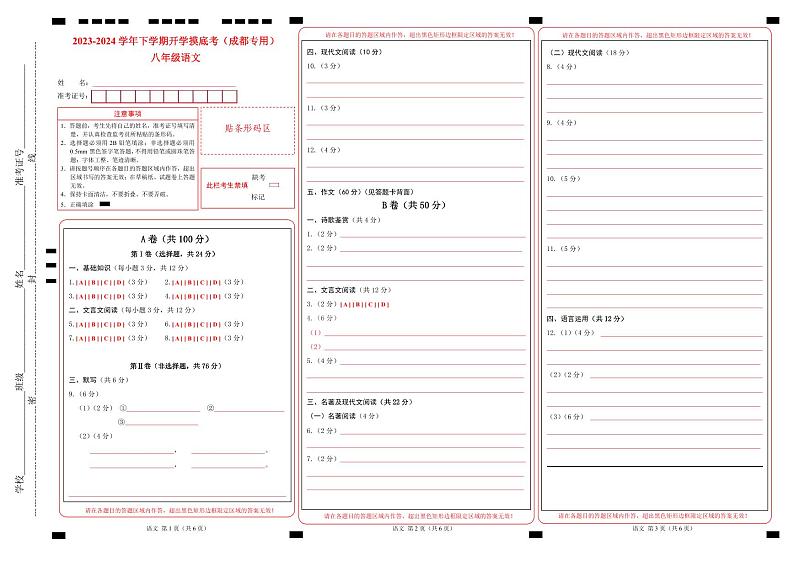 学校
班级
姓名
准考证号
密
封
线
2023-2024 学年下学期开学摸底考（成都专用）
八年级语文
姓 名：
准考证号：
注意事项
1．答题前，考生先将自己的姓名，准考证号填写清楚，并认真检查监考员所粘贴的条形码。
2．选择题必须用 2B 铅笔填涂；非选择题必须用 0.5mm 黑色签字笔答题，不得用铅笔或圆珠笔答题；字体工整、笔迹清晰。
3．请按题号顺序在各题目的答题区域内作答，超出区域书写的答案无效；在草稿纸、试题卷上答题无效。
4．保持卡面清洁，不要折叠、不要弄破。
5．正确填涂
贴条形码区
此栏考生禁填
缺考
标记
A 卷（共 100 分）
第Ⅰ卷（选择题，共 24 分）
一、基础知识（每小题 3 分，共 12 分）
1.[A][B][C][D]（3 分） 2.[A][B][C][D]（3 分）
3.[A][B][C][D]（3 分） 4.[A][B][C][D]（3 分）
二、文言文阅读（每小题 3 分，共 12 分）
5.[A][B][C][D]（3 分） 6.[A][B][C][D]（3 分）
7.[A][B][C][D]（3 分） 8.[A][B][C][D]（3 分）
第Ⅱ卷（非选择题，共 76 分）
三、默写（共 6 分）
9.（6 分）
（1）（2 分） ① ②
③
（2）（4 分）
， 。
， 。
请在各题目的答题区域内作答，超出黑色矩形边框限定区域的答案无效！
语文 第 1 页（共 6 页）
请在各题目的答题区域内作答，超出黑色矩形边框限定区域的答案无效！
四、现代文阅读（10 分）
10.（3 分）
11.（3 分）
12.（4 分）
五、作文（60 分）（见答题卡背面）
B 卷（共 50 分）
一、诗歌鉴赏（共 4 分）
1.（2 分）
2.（2 分）
二、文言文阅读（共 12 分）
3.（2 分）[A][B][C][D]
4.（6 分）
（1）
（2）
5.（4 分）
三、名著及现代文阅读（共 22 分）
（一）名著阅读（4 分）
6.（2 分）
7.（2 分）
请在各题目的答题区域内作答，超出黑色矩形边框限定区域的答案无效！
语文 第 2 页（共 6 页）
请在各题目的答题区域内作答，超出黑色矩形边框限定区域的答案无效！
（二）现代文阅读（18 分）
8.（4 分）
9.（4 分）
10.（5 分）
11.（5 分）
四、语言运用（共 12 分）
12.（1）（4 分）
（2）（2 分）
（3）（6 分）
请在各题目的答题区域内作答，超出黑色矩形边框限定区域的答案无效！
语文 第 3 页（共 6 页）